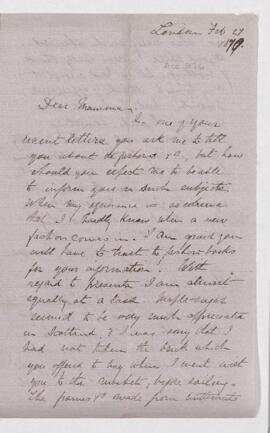 London Feb 27
1879.
Dear Mamma,
In one of your
recent letters you ask me to tell
you about the fashions &c, but how
should you expect me to be able
to inform you on such subjects
When my ignorance is so extreme
that I hardly know when a new
fashion comes in. I am afraid you
will have to trust to fashion books
for your information. With
regard to presents I am almost
equally at a loss
seemed to be very much appreciated
in Scotland, & I was sorry that I
had not taken the which
you offered to buy when I went with
you to the market, before sailing.
The frames &c made from butternuts